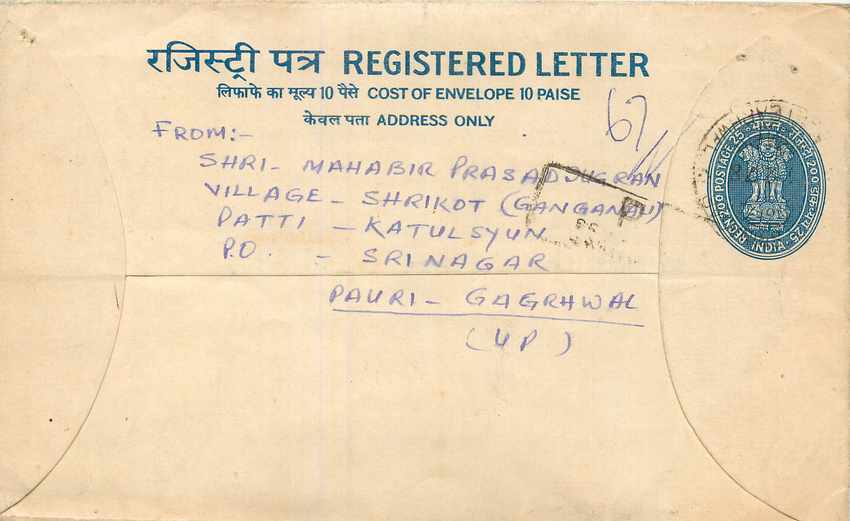 रजिस्ट्री पत्र REGISTERED LETTER
लिफाफे का मूल्य 10 पैसे COST OF ENVELOPE 10 PAISE
केवल पता ADDRESS ONLY
67/
FROM:-
SHRI- MAHABIR PRASAD JUGRAN
VILLAGE - SHRIKOT (GANGANALI)
PATTI - KATULSYUN
P.O. - SRINAGAR
PAURI- GAGRHWAL
(UP)
REGN. 200 POSTAGE 25 भारत
INDIA